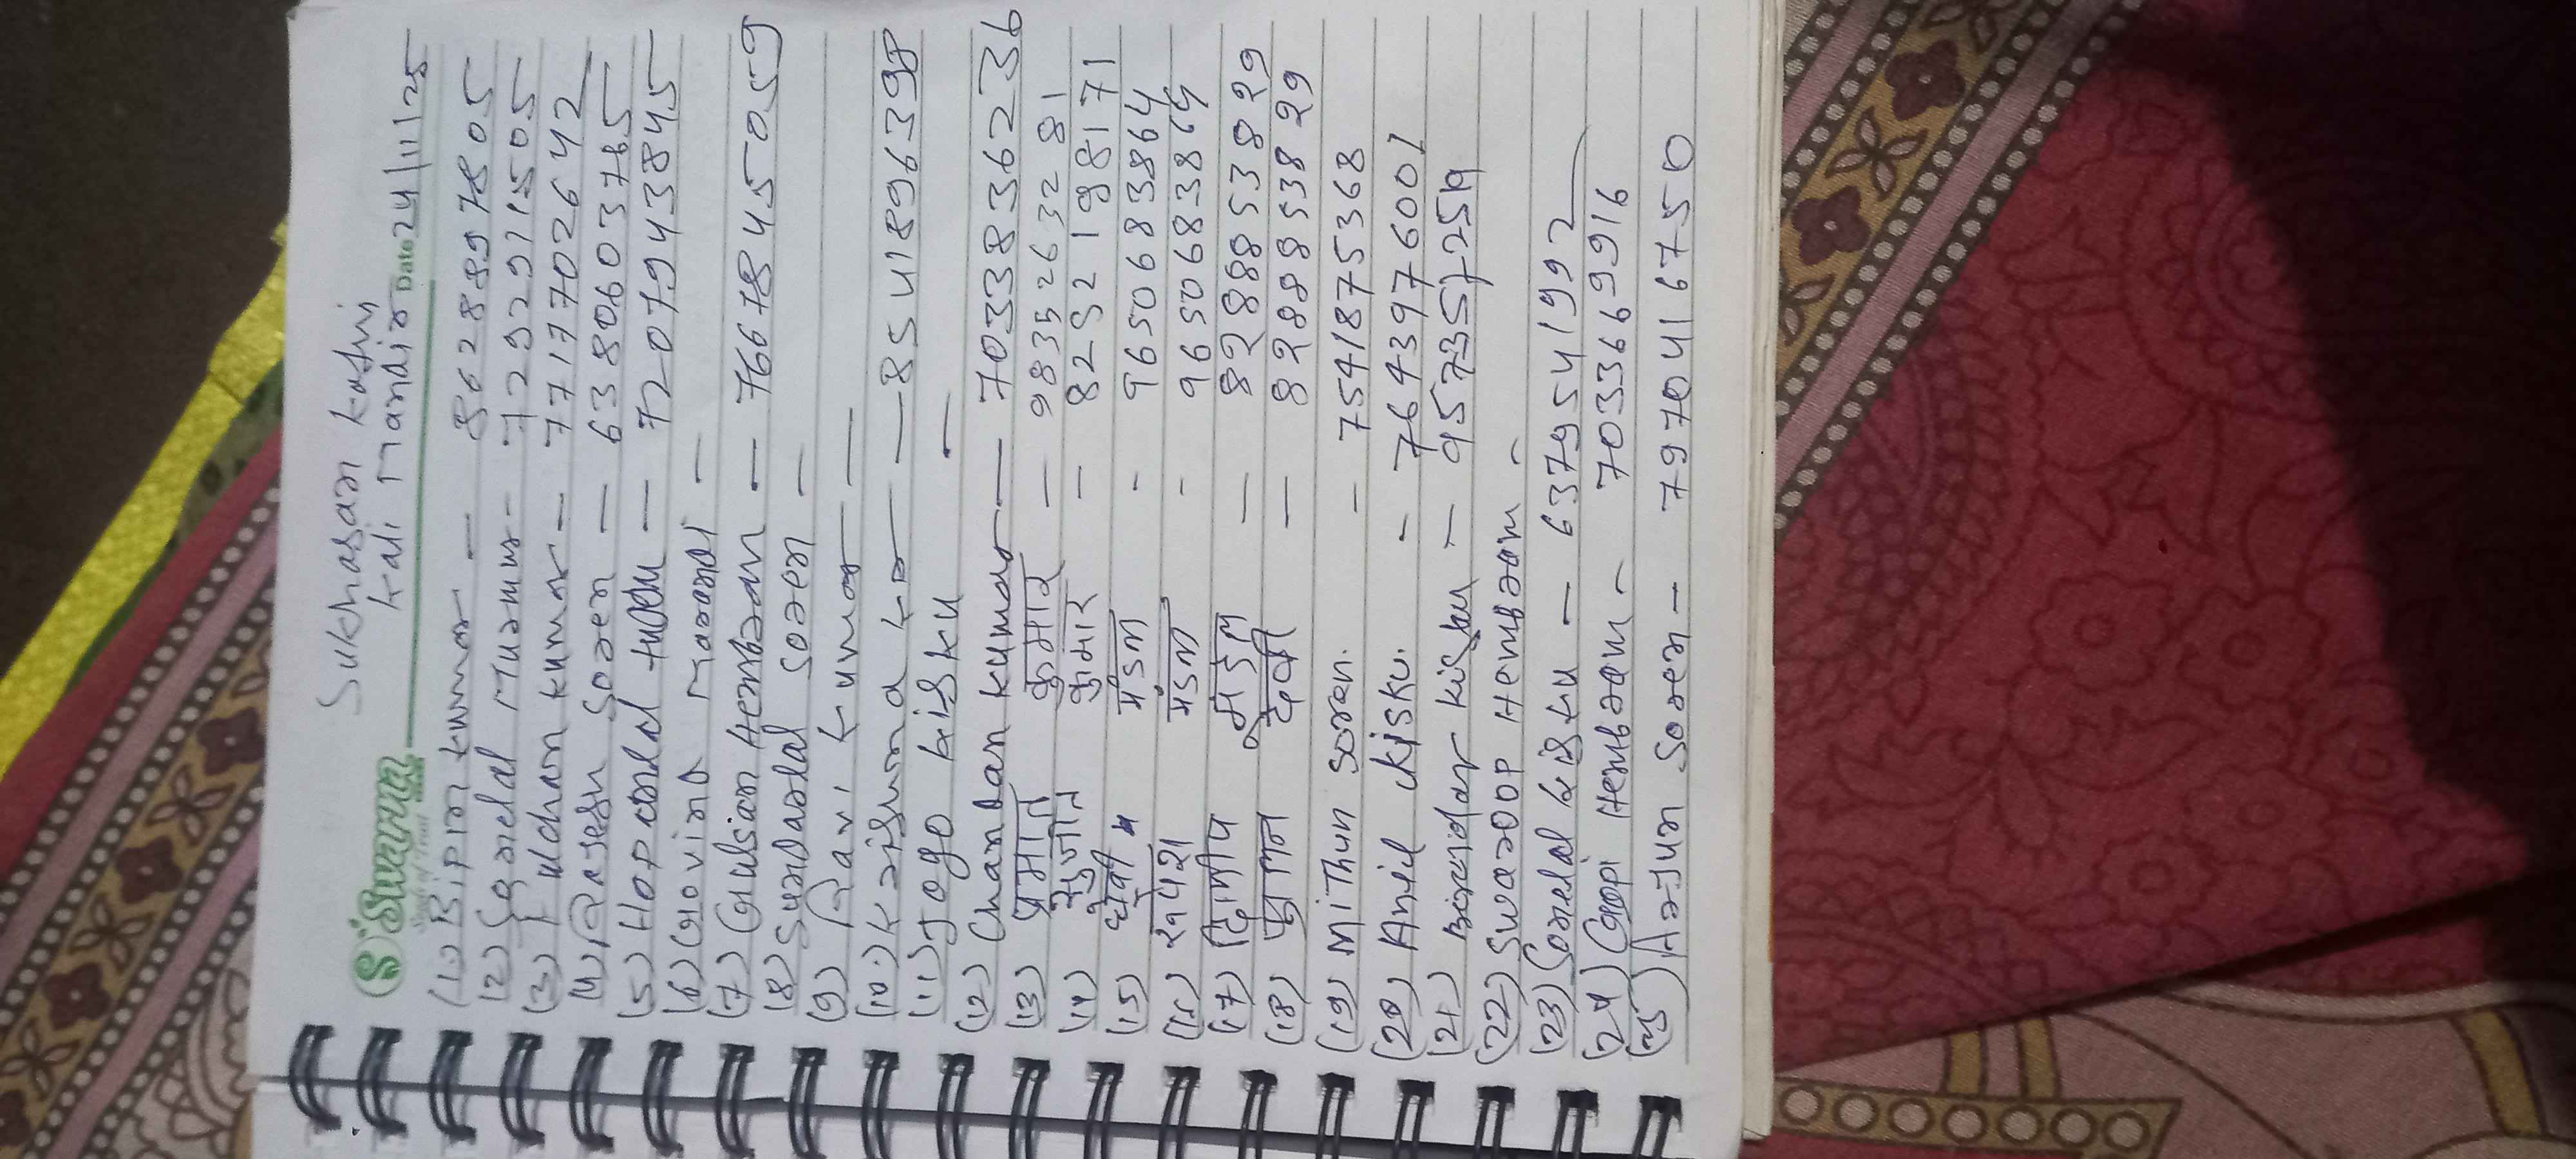 Sukhasan Kothi
Kali Mandir
Swarna Date 24/11/25
(1) Bipin kumar — 8628897805
(2) Sonelal Murmur - 7292911505
(3) Fulchan kumar - 7717702642
(4) Rajesh Soren — 6380603765
(5) Hopconld tudu — 7207943845
(6) Govind Marandi —
(7) Gulsian Hembram — 7667845059
(8) Sundarlal Soren —
(9) Ravi kumar —
(10) Krisuna kr — 8541896398
(11) Jogo kisku —
(12) Chandan kumar — 7033836236
(13) प्रभात कुमार — 9835263281
(14) सुजीत कुमार — 8252198171
(15) मंडल - 9650683864
मंडल - 9650683864
(17) दिलीप मंडल — 8288853829
(18) फुलन देवी — 8288853829
(19) Mithun soren. - 7541875368
(20) Anil Kisku. - 7643976001
(21) Birendar kisku — 957357259
(22) Swaroop Hembram -
(23) Sonelal kisku — 6379541992
(24) Gopi Hembram - 7033669916
(25) Arjun Soren - 7970416750